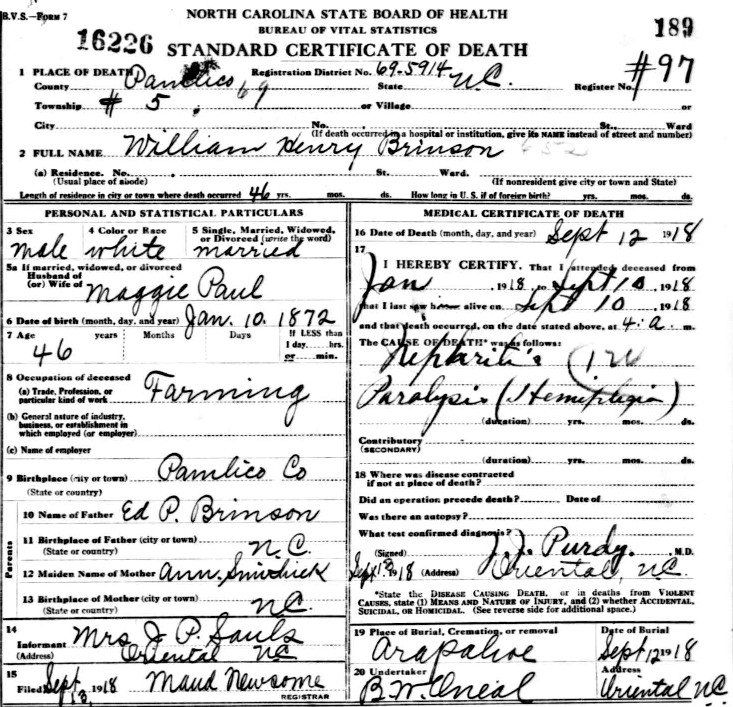 B.V.S.—FORM 7
NORTH CAROLINA STATE BOARD OF HEALTH
BUREAU OF VITAL STATISTICS
16226
189
STANDARD CERTIFICATE OF DEATH
1 PLACE OF DEATH Registration District No. 69-5914 #97
County Pamlico 69 State N.C. Register No.
Township # 5. or Village or
City No. St., Ward
(If death occurred in a hospital or institution, give its NAME instead of street and number)
2 FULL NAME William Henry Brinson
(a) Residence. No. St. Ward.
(Usual place of abode) (If nonresident give city or town and State)
Length of residence in city or town where death occurred 46 yrs. mos. ds. How long in U.S. if of foreign birth? yrs. mos. ds.
PERSONAL AND STATISTICAL PARTICULARS
3 Sex 4 Color or Race 5 Single, Married, Widowed, or Divorced (write the word)
male white married
5a If married, widowed, or divorced
Husband of
(or) Wife of Maggie Paul
6 Date of birth (month, day, and year) Jan. 10. 1872
7 Age years Months Days If LESS than
1 day, hrs.
46 or min.
8 Occupation of deceased
(a) Trade, Profession, or
particular kind of work Farming
(b) General nature of industry,
business, or establishment in
which employed (or employer)
(c) Name of employer
9 Birthplace (city or town) Pamlico Co
(State or country)
Parents
10 Name of Father Ed P. Brinson
11 Birthplace of Father (city or town)
(State or country) N.C.
12 Maiden Name of Mother Ann
13 Birthplace of Mother (city or town)
(State or country) N.C.
14
Informant Mrs J. P. Sauls
(Address) Oriental NC
15
Filed Sept 13, 1918 Maud Newsome
REGISTRAR
MEDICAL CERTIFICATE OF DEATH
16 Date of Death (month, day, and year) Sept 12 1918
17
I HEREBY CERTIFY, That I attended deceased from
Jan, 1918, to Sept 10, 1918
that I last saw him alive on Sept 10, 1918
and that death occurred, on the date stated above, at 4:a. m.
The CAUSE OF DEATH* was as follows:
Nephritis
Paralysis (Hemiplegia)
(duration) yrs. mos. ds.
Contributory
(SECONDARY)
(duration) yrs. mos. ds.
18 Where was disease contracted
if not at place of death?
Did an operation precede death? Date of
Was there an autopsy?
What test confirmed diagnosis?
(Signed) J. J. Purdy. M.D.
Sept 13 1918 (Address) Oriental, N.C.
*State the DISEASE CAUSING DEATH, or in deaths from VIOLENT
CAUSES, state (1) MEANS AND NATURE OF INJURY, and (2) whether ACCIDENTAL,
SUICIDAL, or HOMICIDAL. (See reverse side for additional space.)
19 Place of Burial, Cremation, or removal Date of Burial
Arapahoe Sept 12 1918
20 Undertaker Address
B.W. Oneal Oriental N.C.